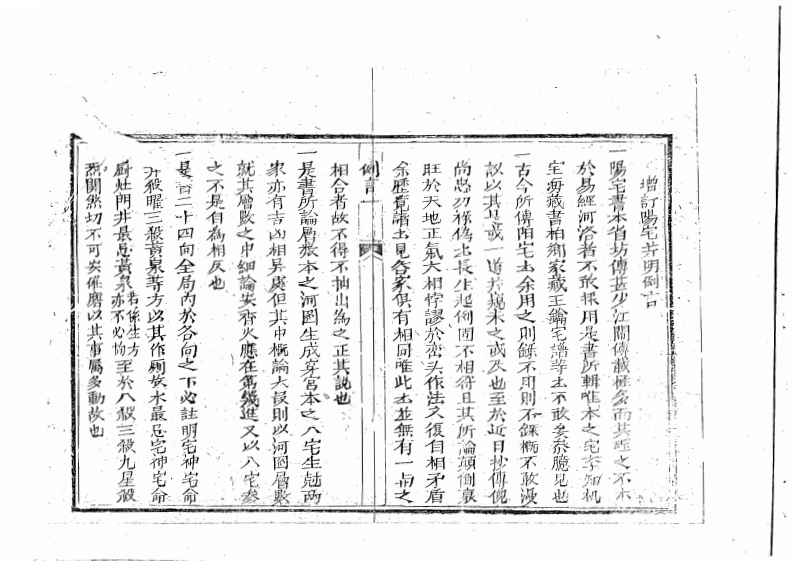 增訂陽宅井明例言
一陽宅書本省坊傳甚少江關傳載極多而其理之不本
於易經河洛者不敢採用是書所輯唯本之宅字知机
宝海藏書柏鄉家藏王鑰宅譜等书不敢妄參臆見也
一古今所傳阳宅书余用之則錄不用則不錄概不敢漫
議以其見或一道井窺未之或及也至於近日抄傳倪
尚忠刃祿偽书長生起例固不相符且其所論顛倒衰
旺於天地正氣大相悖謬於峦头作法又復自相矛盾
余歷覽諸书見各家俱有相同唯此书並無有一 之
例言 一
相合者故不得不抽出為之正其說也
一是書所論層張本之河圖生成穿宮本之八宅生尅兩
家亦有吉凶相異處但其中概論大最則以河圖層數
就其層數之中細論安 火應在第幾進又以八宅參
之不是自為相反也
一是書二十四向全局內於各向之下必註明宅神宅命
并殺曜三殺黃泉等方以其作厕放水最忌宅神宅命
厨灶門井最忌黃泉若係生方亦不必拘至於八殺三殺九星殺
熱關煞切不可安碓磨以其事屬多動故也